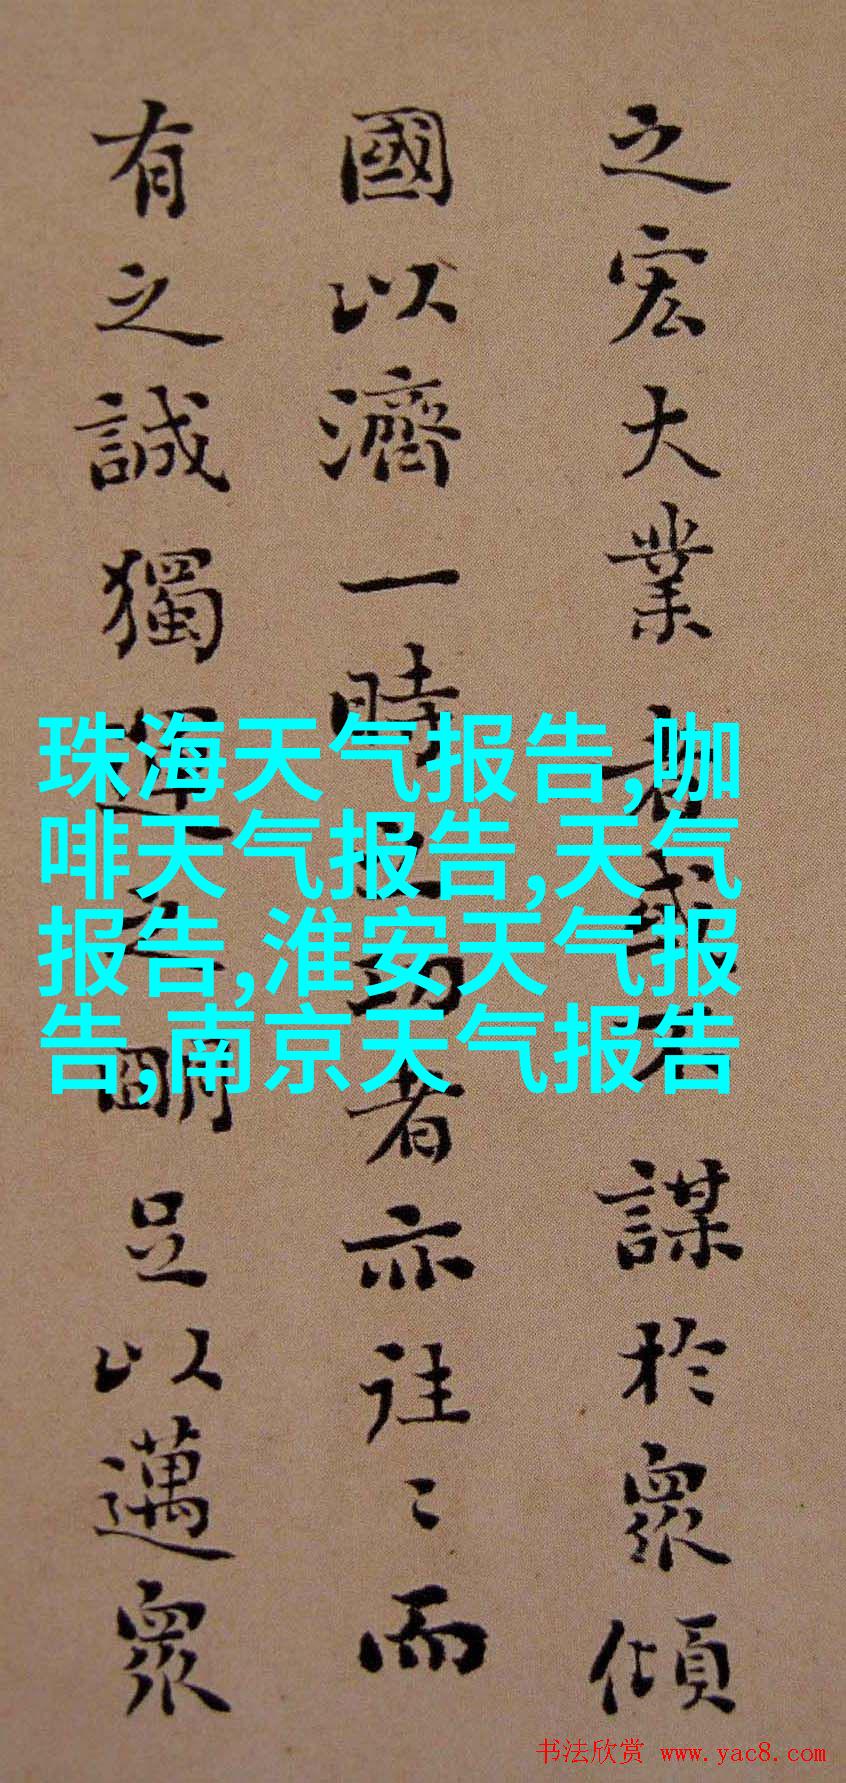 之宏大業者或不謀於眾傾
國以濟一時之功者亦往〻而
有之誠獨運之明足以邁眾
珠海天气报告,咖
啡天气报告,天气
报告,淮安天气报
告,南京天气报告
书法欣赏 www.yac8.com